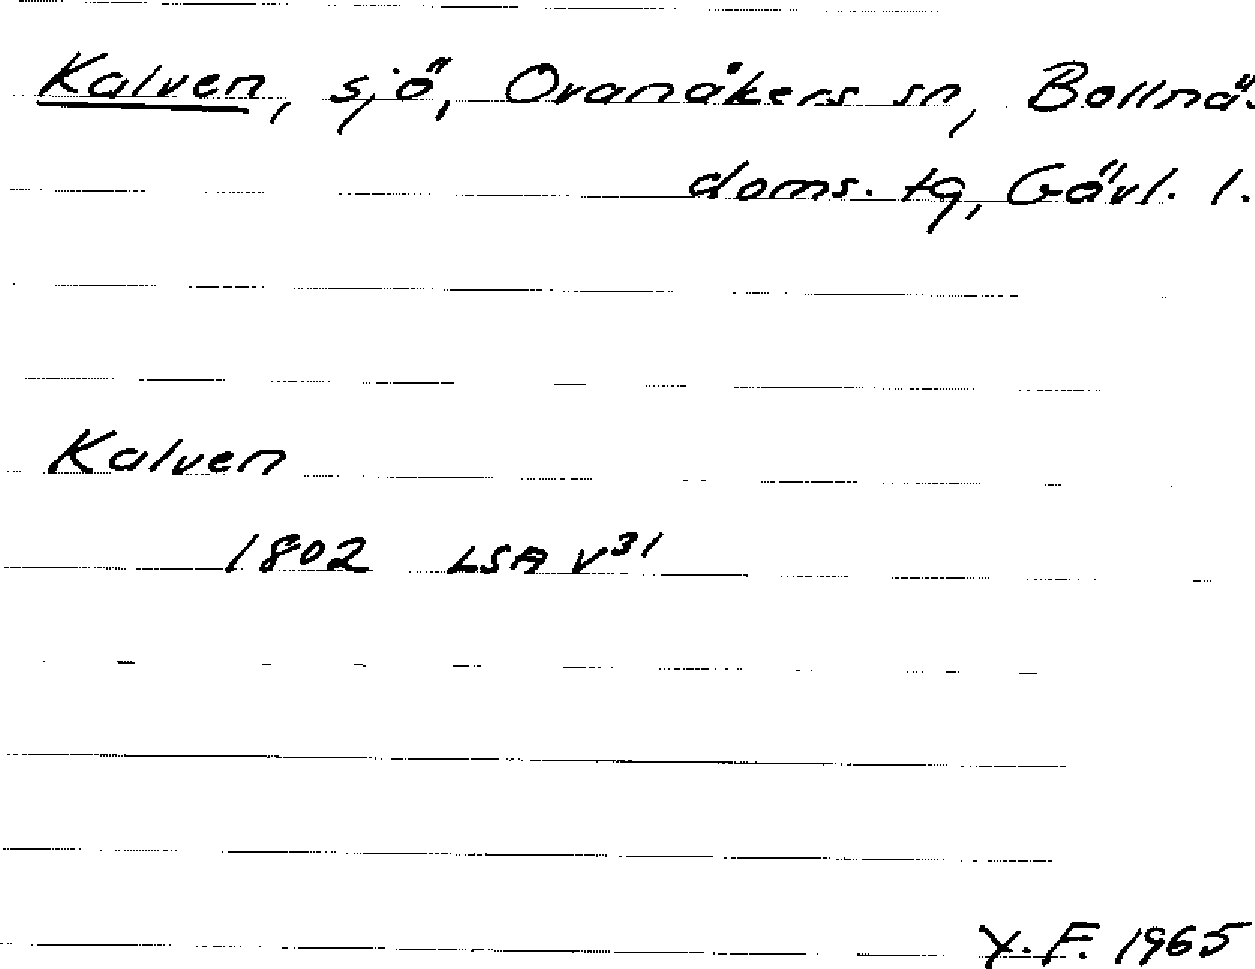 Kalven, sjö, Ovanåkers sn, Bollnäs
doms. tg, Gävl. l.
Kalven
1802 LSA V31
Y. F. 1965